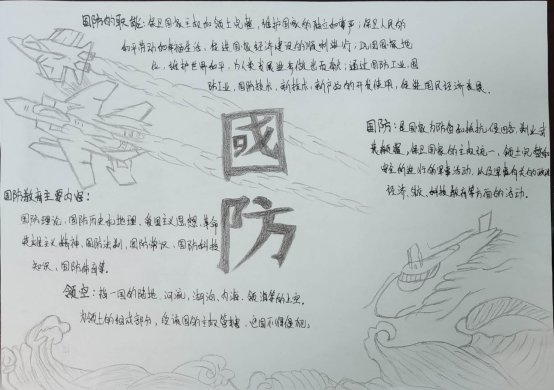 国防的职能：保卫国家主权和领土完整，维护国家的独立和尊严；保卫人民的
和平劳动和幸福生活，促进国家经济建设的顺利进行，巩固国家地
位，维护世界和平，为人类发展业贡献；通过国防工业，国
防工业，国防技术，新技术，新产品的开发使用，促进国民经济发展。
國
防
国防：是国家为防备和抵抗侵略，制止武
装颠覆，保卫国家的主权统一、领土完整和
安全所进行的军事活动，以及军事有关的政治
经济、外交、科技教育等方面的活动。
国防教育主要内容：
国防理论、国防历史和地理、爱国主义思想、革命
英雄主义精神、国防法制、国防常识、国防科技
知识、国防体育等。
领空：指一国的陆地、河流、湖泊、内海、领海等的上空。
为领土的组成部分，受该国的主权管辖，它国不得侵犯。